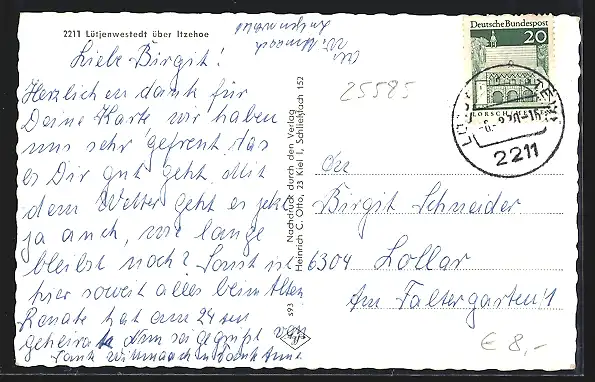 2211 Lütjenwestedt über Itzehoe
Liebe Birgit!
Herzlichen dank für
Deine Karte wir haben
uns sehr gefreut das
es Dir gut geht Mit
dem Wetter geht es jetzt
ja auch, wie lange
bleibst noch? Sonst ist
hier soweit alles beim Alten
Renate hat am 24 sen
geheiratet sei gegrüßt von
Tante
25585
Nachdruck durch den Verlag
Heinrich C. Otto, 23 Kiel 1, Schließfach 152
s93
Deutsche Bundespost
20
LORSCH/HESSEN
2211
An
Birgit Schneider
6304 Lollar
Am Faltergarten 1
€ 8,-